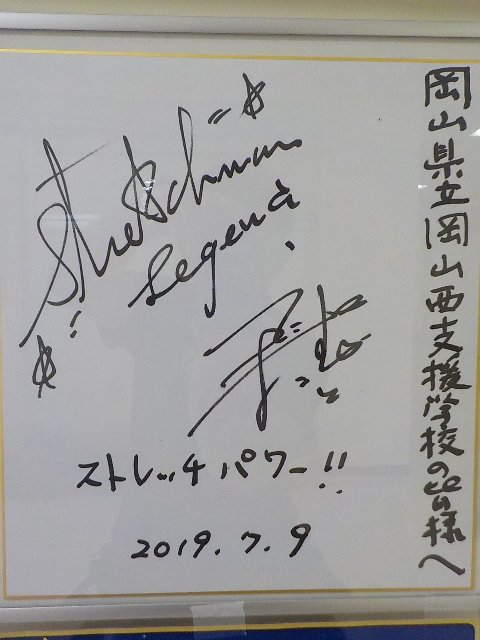 岡山県立岡山西支援学校の皆様へ
Stretchman
Legend
ストレッチパワー!!
2019.7.9